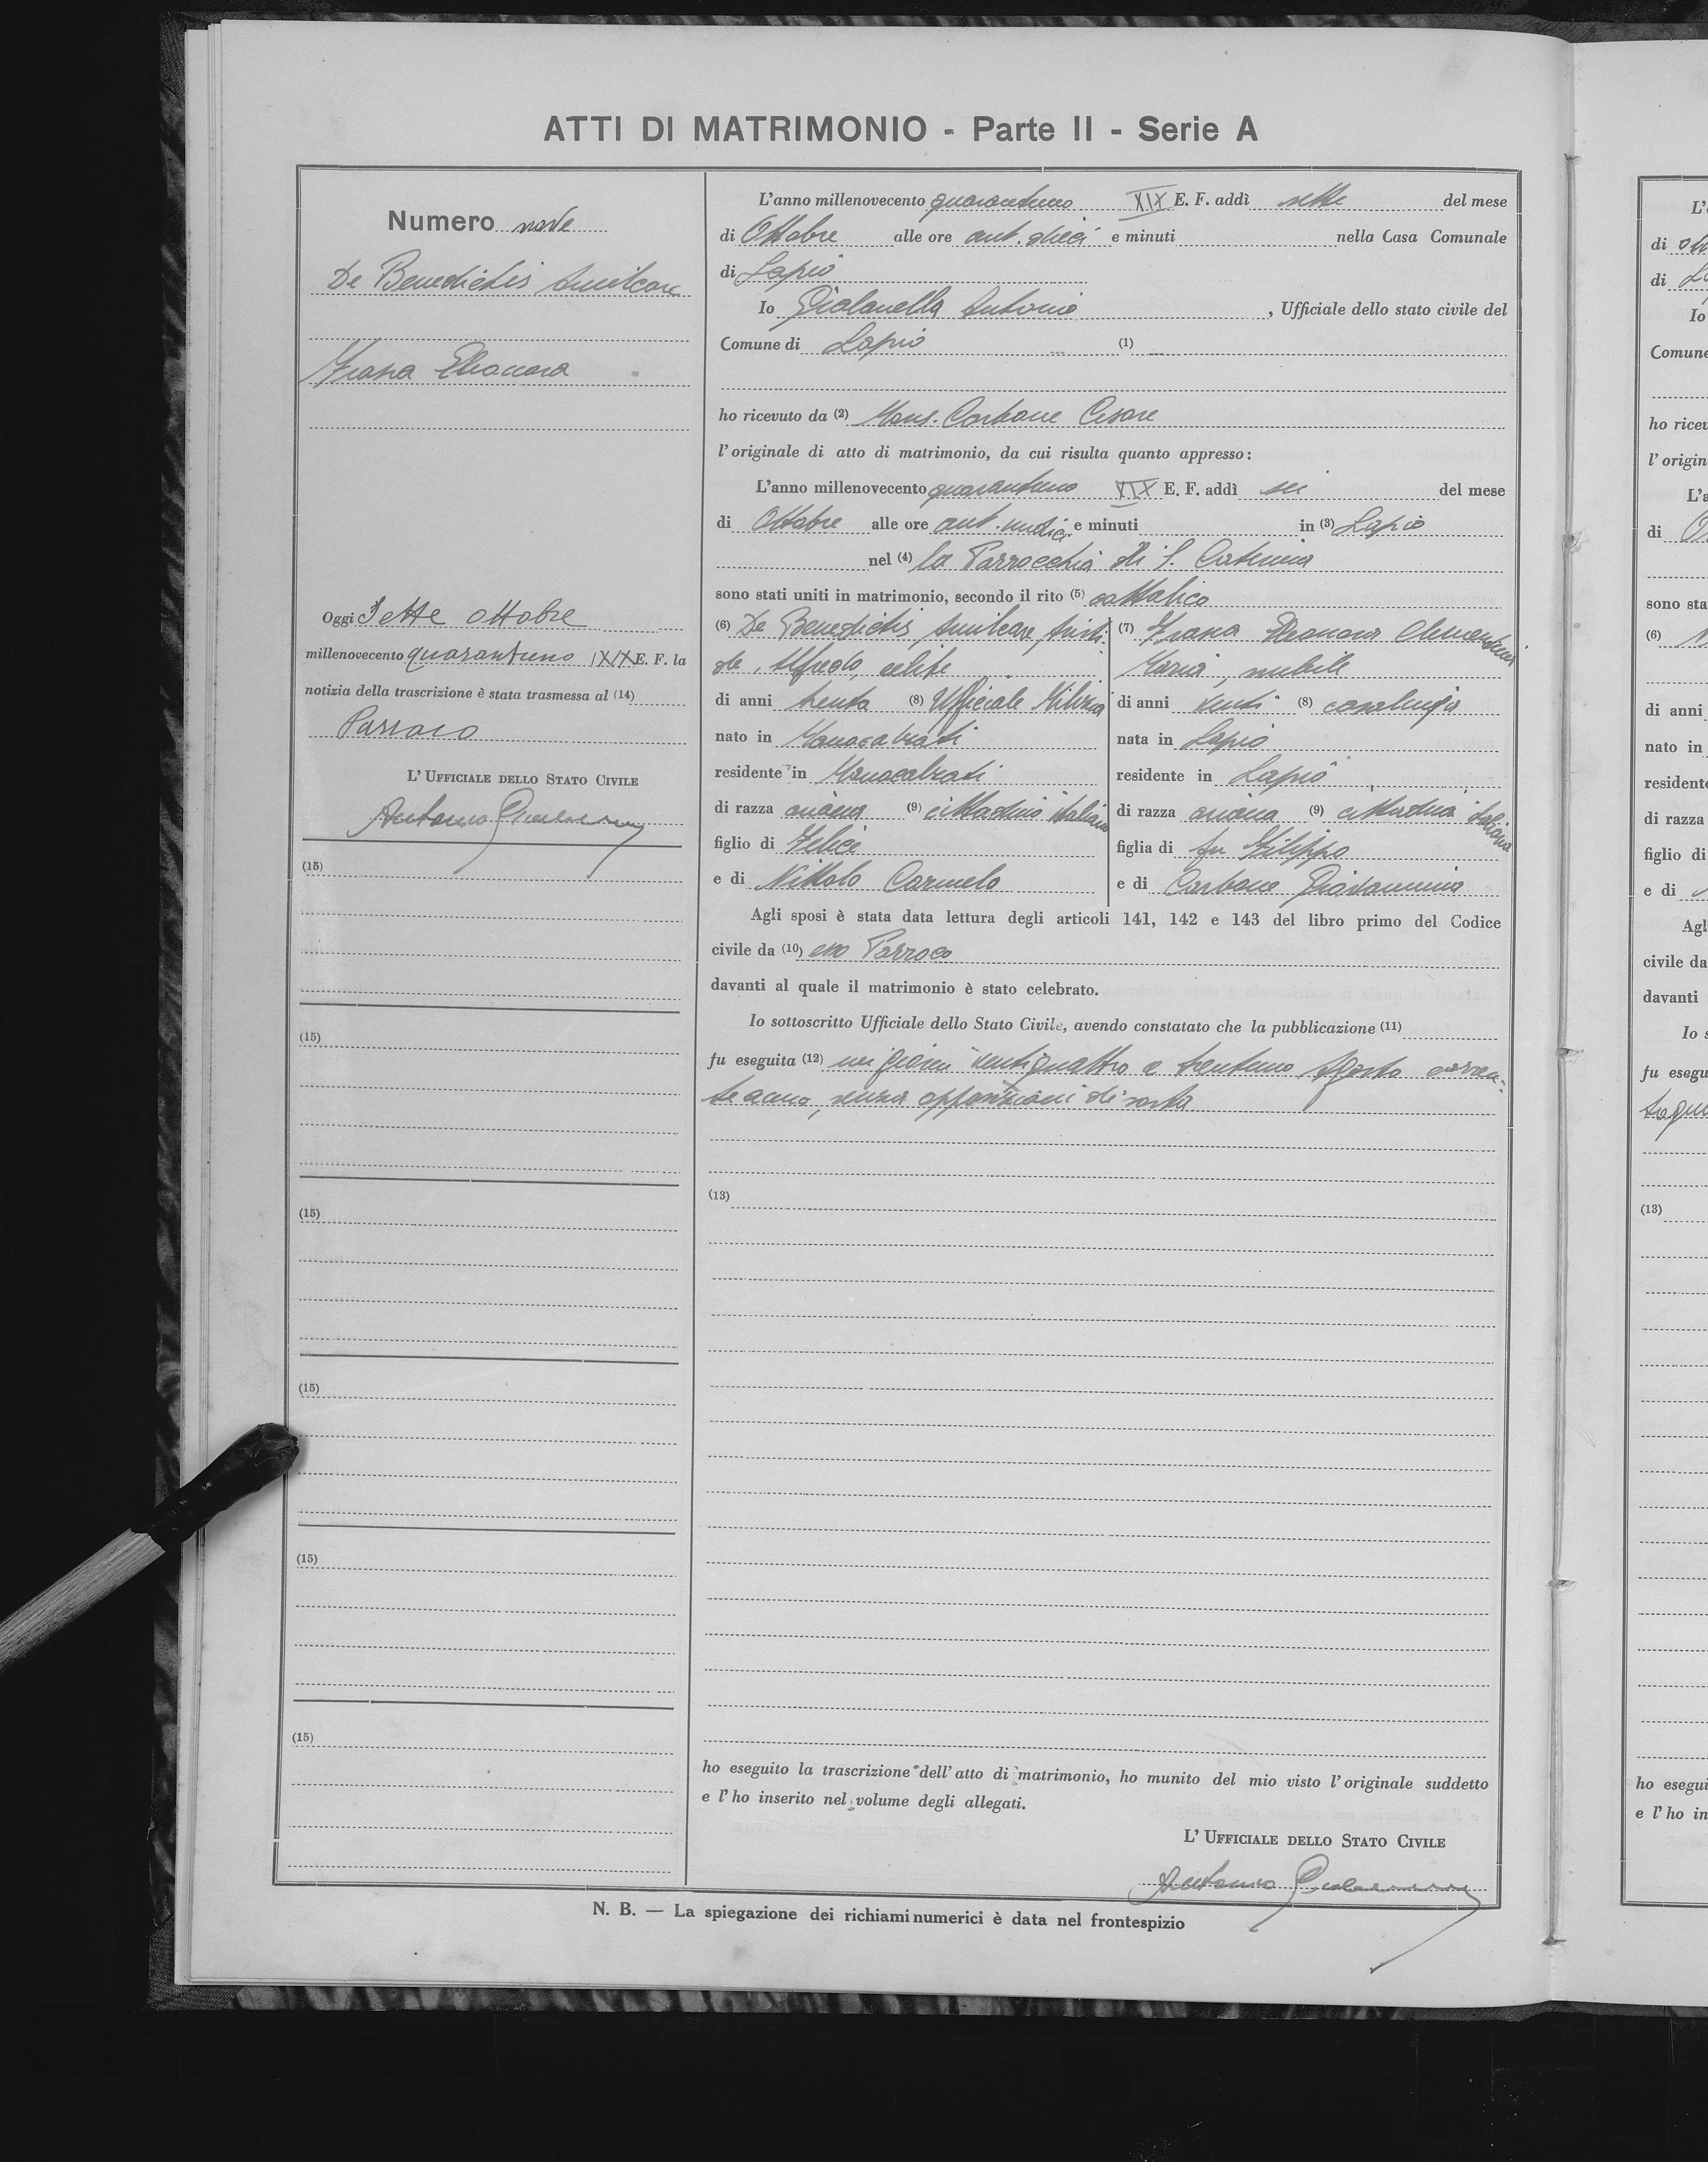 ATTI DI MATRIMONIO - Parte II - Serie A
Numero nove
De Benedictis Amilcare
Grasa Eleonora
Oggi Sette ottobre
millenovecento quarantuno XIX E. F. la
notizia della trascrizione è stata trasmessa al (14)
Parroco
L'UFFICIALE DELLO STATO CIVILE
Antonio
(15)
(15)
(15)
(15)
(15)
(15)
L'anno millenovecento quarantuno XIX E. F. addì sette del mese
di Ottobre alle ore ant. dieci e minuti nella Casa Comunale
di Lapio
Io Giolanella Antonio , Ufficiale dello stato civile del
Comune di Lapio (1)
ho ricevuto da (2) Mons. Carbone Cesare
l'originale di atto di matrimonio, da cui risulta quanto appresso:
L'anno millenovecento quarantuno XIX E. F. addì sei del mese
di Ottobre alle ore ant. undici e minuti in (3) Lapio
nel (4) la Parrocchia di S. Caterina
sono stati uniti in matrimonio, secondo il rito (5) cattolico
(6) De Benedictis Amilcare, Aristi-
de, Alfredo, celibe
di anni trenta (8) Ufficiale Milizia
nato in Manocalzati
residente in Manocalzati
di razza ariana (9) cittadino italiano
figlio di Felice
e di Nittolo Carmela
(7) Eleonora Clementina
Maria, nubile
di anni venti (8) casalinga
nata in Lapio
residente in Lapio
di razza ariana (9) cittadina italiana
figlia di fu Filippo
e di Carbone Giovannina
Agli sposi è stata data lettura degli articoli 141, 142 e 143 del libro primo del Codice
civile da (10) esso Parroco
davanti al quale il matrimonio è stato celebrato.
Io sottoscritto Ufficiale dello Stato Civile, avendo constatato che la pubblicazione (11)
fu eseguita (12) nei giorni ventiquattro e trentuno Agosto corren-
te anno, senza opposizioni di sorta
(13)
ho eseguito la trascrizione dell'atto di matrimonio, ho munito del mio visto l'originale suddetto
e l'ho inserito nel volume degli allegati.
L'UFFICIALE DELLO STATO CIVILE
Antonio
N. B. — La spiegazione dei richiami numerici è data nel frontespizio
L'
di
di
Io
Comune
ho ricev
l'origin
L'a
di
sono sta
(6)
di anni
nato in
residente
di razza
figlio di
e di
Agl
civile da
davanti
Io s
fu esegu
(13)
ho esegui
e l'ho in